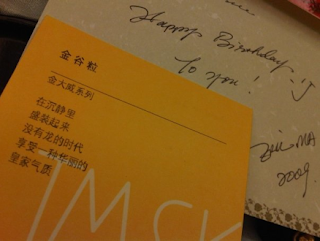 Happy Birthday
to you!
MA
2009.
金谷粒
金大班系列
在沉静里
盛装起来
没有龙的时代
享受一种华丽的
皇家气质
TMSK